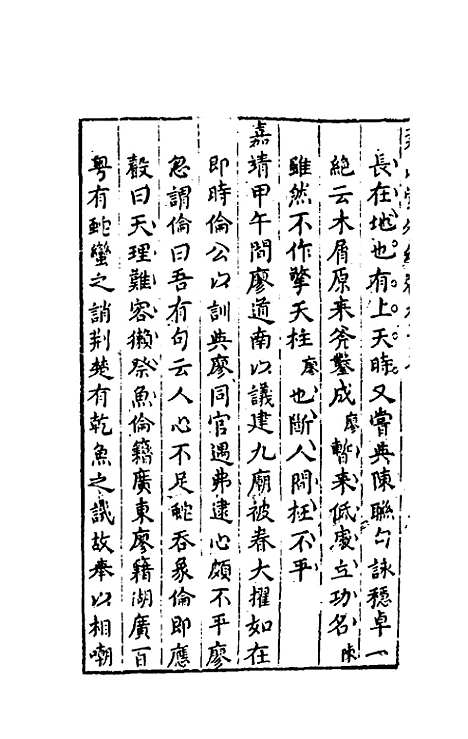 長在地也有上天時又嘗與陳聯句詠穩卓一
絶云木屑原来斧鑿成廖暫来低處立功名陳
雖然不作擎天柱廖也斷人間枉不平
嘉靖甲午間廖道南以議建九廟被春大擢如在
即時倫公以訓典廖同官遇弗逮心頗不平廖
忽謂倫曰吾有句云人心不足蛇吞象倫即應
聲曰天理難容獺祭魚倫籍廣東廖籍湖廣百
粤有蛇蠻之誚荆楚有乾魚之譏故奉以相嘲